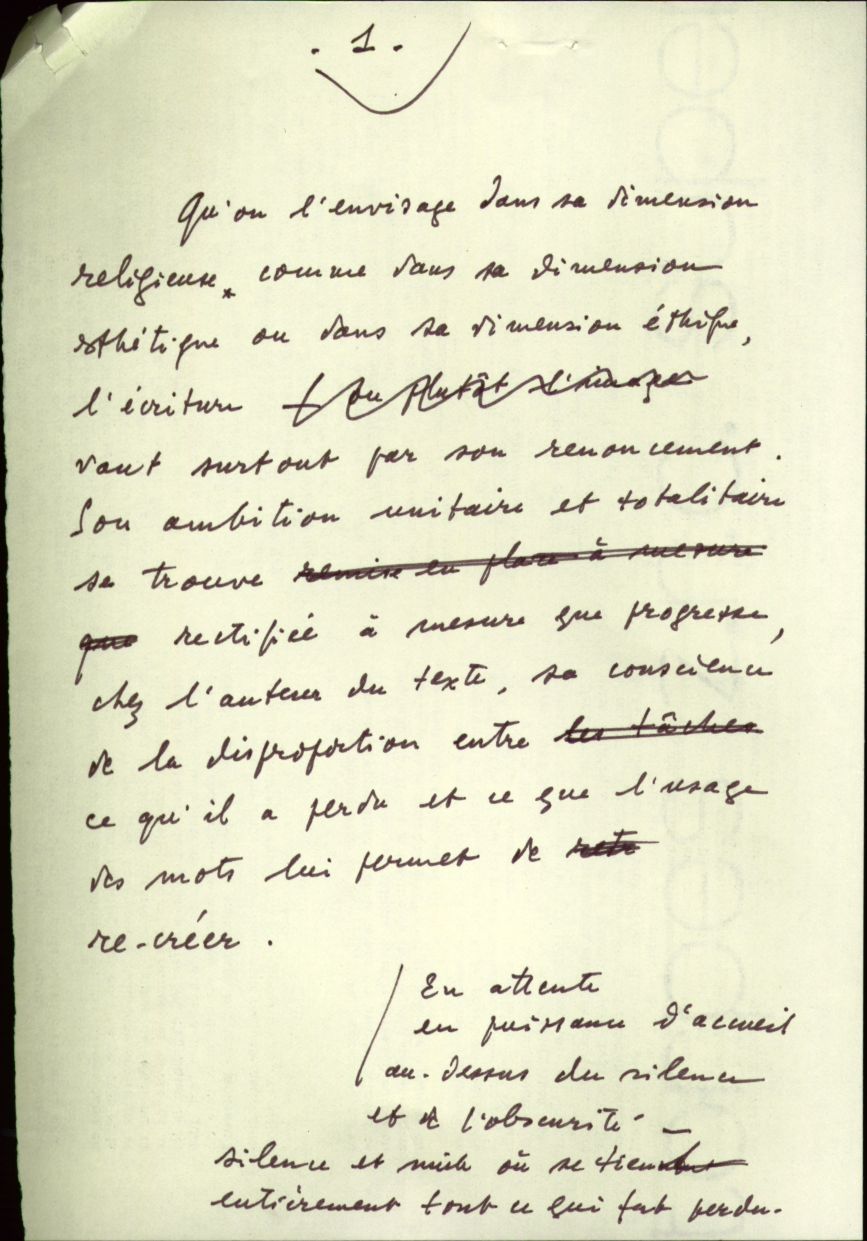 . 1 .
Qu'on l'envisage dans sa dimension
religieuse, comme dans sa dimension
esthétique ou dans sa dimension éthique,
l'écriture ou plutôt
vaut surtout par son renoncement.
Son ambition unitaire et totalitaire
se trouve remise en place à mesure
que rectifiée à mesure que progresse,
chez l'auteur du texte, sa conscience
de la disproportion entre les tâches
ce qu'il a perdu et ce que l'usage
des mots lui permet de retr
re-créer.
En attente
en puissance d'accueil
au-dessus du silence
et de l'obscurité –
silence et nuit où se tient
entièrement tout ce qui fut perdu.